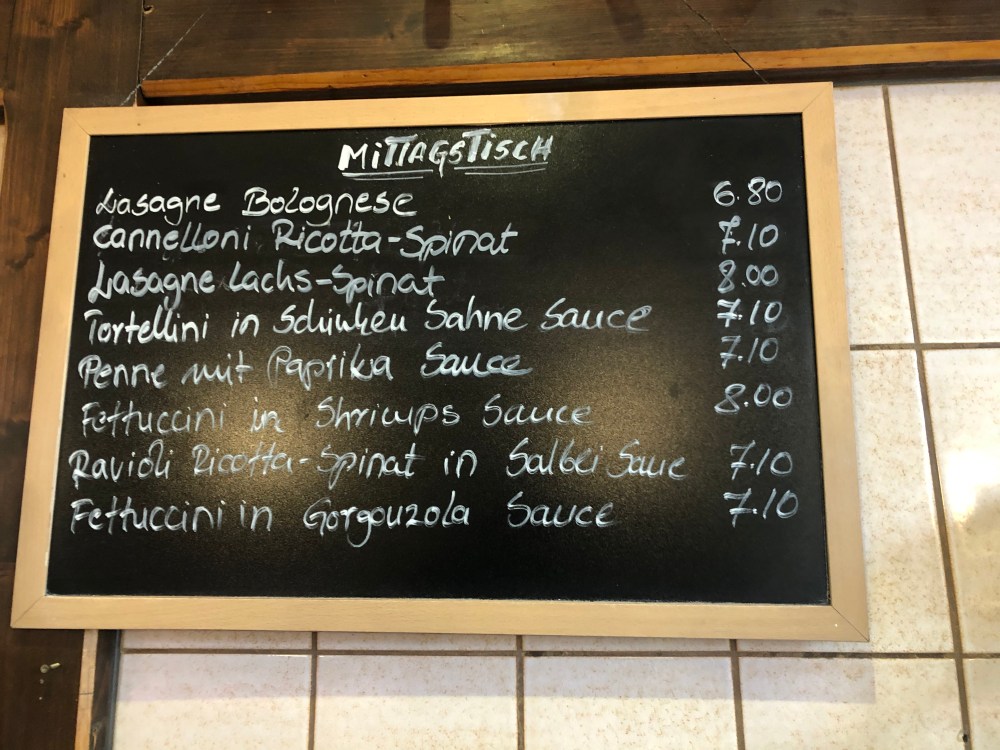 MITTAGSTISCH
Lasagne Bolognese 6.80
Cannelloni Ricotta-Spinat 7.10
Lasagne Lachs-Spinat 8.00
Tortellini in Schinken Sahne Sauce 7.10
Penne mit Paprika Sauce 7.10
Fettuccini in Shrimps Sauce 8.00
Ravioli Ricotta-Spinat in Salbei Sauce 7.10
Fettuccini in Gorgonzola Sauce 7.10